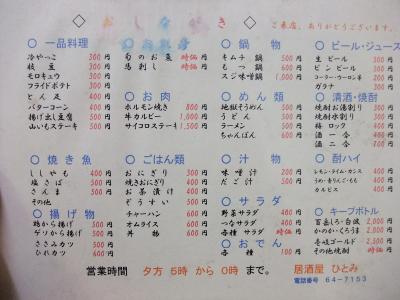 ◇ おしながき ◇
ご来店、ありがとうございます。
○ 一品料理
冷やっこ 300円
枝豆 300円
モロキュウ 300円
フライドポテト 300円
とん足 400円
バターコーン 400円
揚げ出し豆腐 500円
山いもステーキ 500円
○ 焼き魚
ししゃも 400円
塩さば 500円
さんま 500円
その他
○ 揚げ物
鶏から揚げ 500円
ゲソから揚げ 500円
ささみカツ 500円
ひれカツ 600円
旬のお菜 時価
馬刺し 時価
○ お肉
ホルモン焼き 800円
牛カルビー 1,000円
サイコロステーキ 1,500円
○ ごはん類
おにぎり 300円
焼きおにぎり 400円
お茶漬け 500円
ぞうすい 500円
チャーハン 600円
オムライス 600円
丼物 600円
○ 鍋物
キムチ鍋 500円
もつ鍋 500円
スジ味噌鍋 1,000円
○ めん類
地獄そうめん 500円
うどん 500円
ラーメン 500円
ちゃんぽん 600円
○ 汁物
味噌汁 200円
だご汁 500円
○ サラダ
野菜サラダ 400円
つなサラダ 400円
各種サラダ 時価
○ おでん
各種 100円
○ ビール・ジュース
生ビール
ビン ビール
コーラー・ウーロン茶
ガラナ
○ 清酒・焼酎
焼酎お湯割り 300円
焼酎水割り 300円
梅ロック
酒一合
酒二合
○ 酎ハイ
レモン・ライム・カンス
うめ・青りんご・もも
カルピス
○ キープボトル
壱岐ゴールド 2,500円
その他焼酎 時価
営業時間 夕方 5時 から 0時 まで。
居酒屋 ひとみ
電話 64-7153